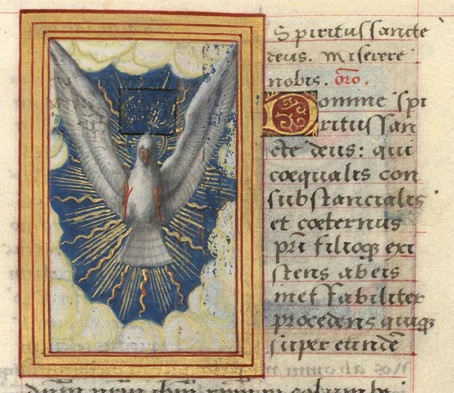 Spiritus sancte
deus. Miserere
nobis. oro.
Domine spi
ritus san
cte deus: qui
coequalis con
substancialis
et coeternus
pri filioq exi
stens ab eis
ineffabiliter
procedens quiq
super eundē